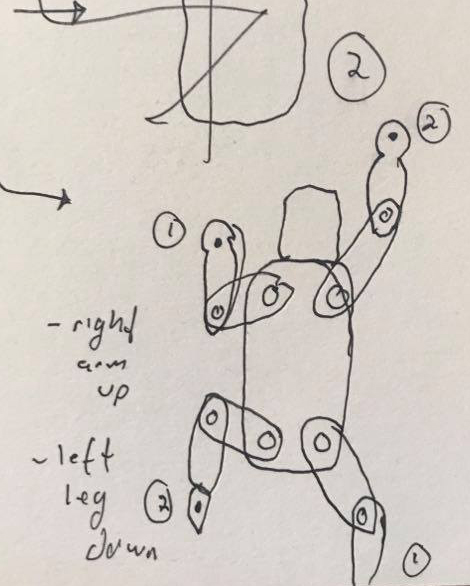 2
2
1
- right
arm
up
- left
leg
down
2
1